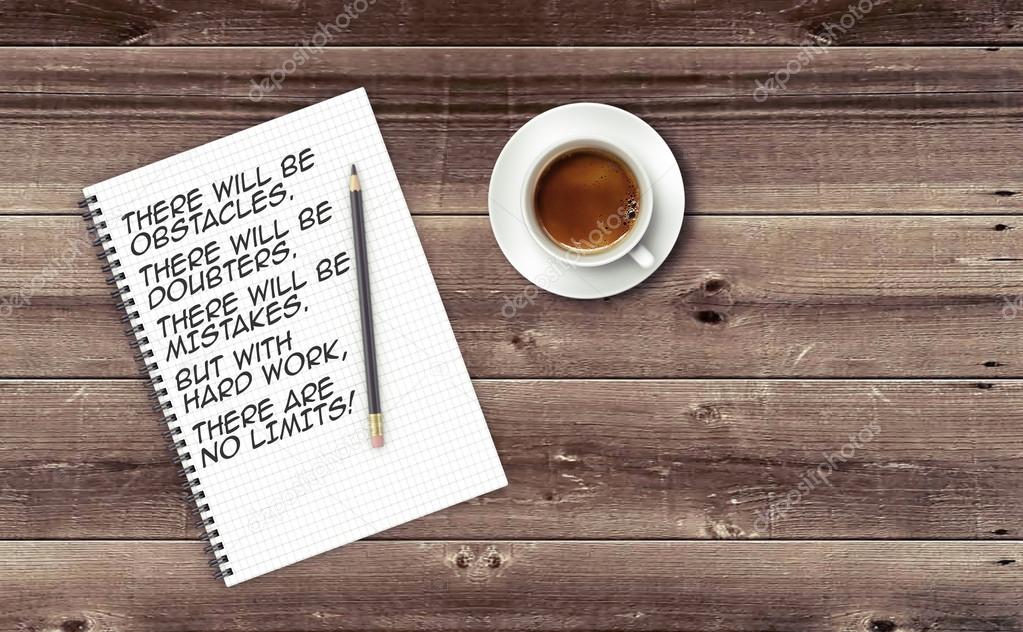 THERE WILL BE
OBSTACLES.
THERE WILL BE
DOUBTERS.
THERE WILL BE
MISTAKES.
BUT WITH
HARD WORK,
THERE ARE
NO LIMITS!
depositphotos
depositphotos
depositphotos
depositphotos
depositphotos
depositphotos